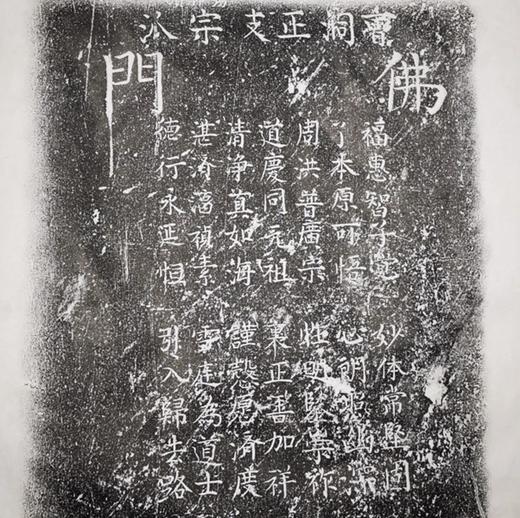 曹洞正支宗派
佛門
福惠智子覺
了本原可悟
周洪普廣崇
道慶同元祖
清净真如海
湛済禎素
德行永延恒
妙体常堅固
心朗照幽深
性明鑒崇祚
衷正善加祥
謹愨愿済度
雪庭為道士
引入歸去路